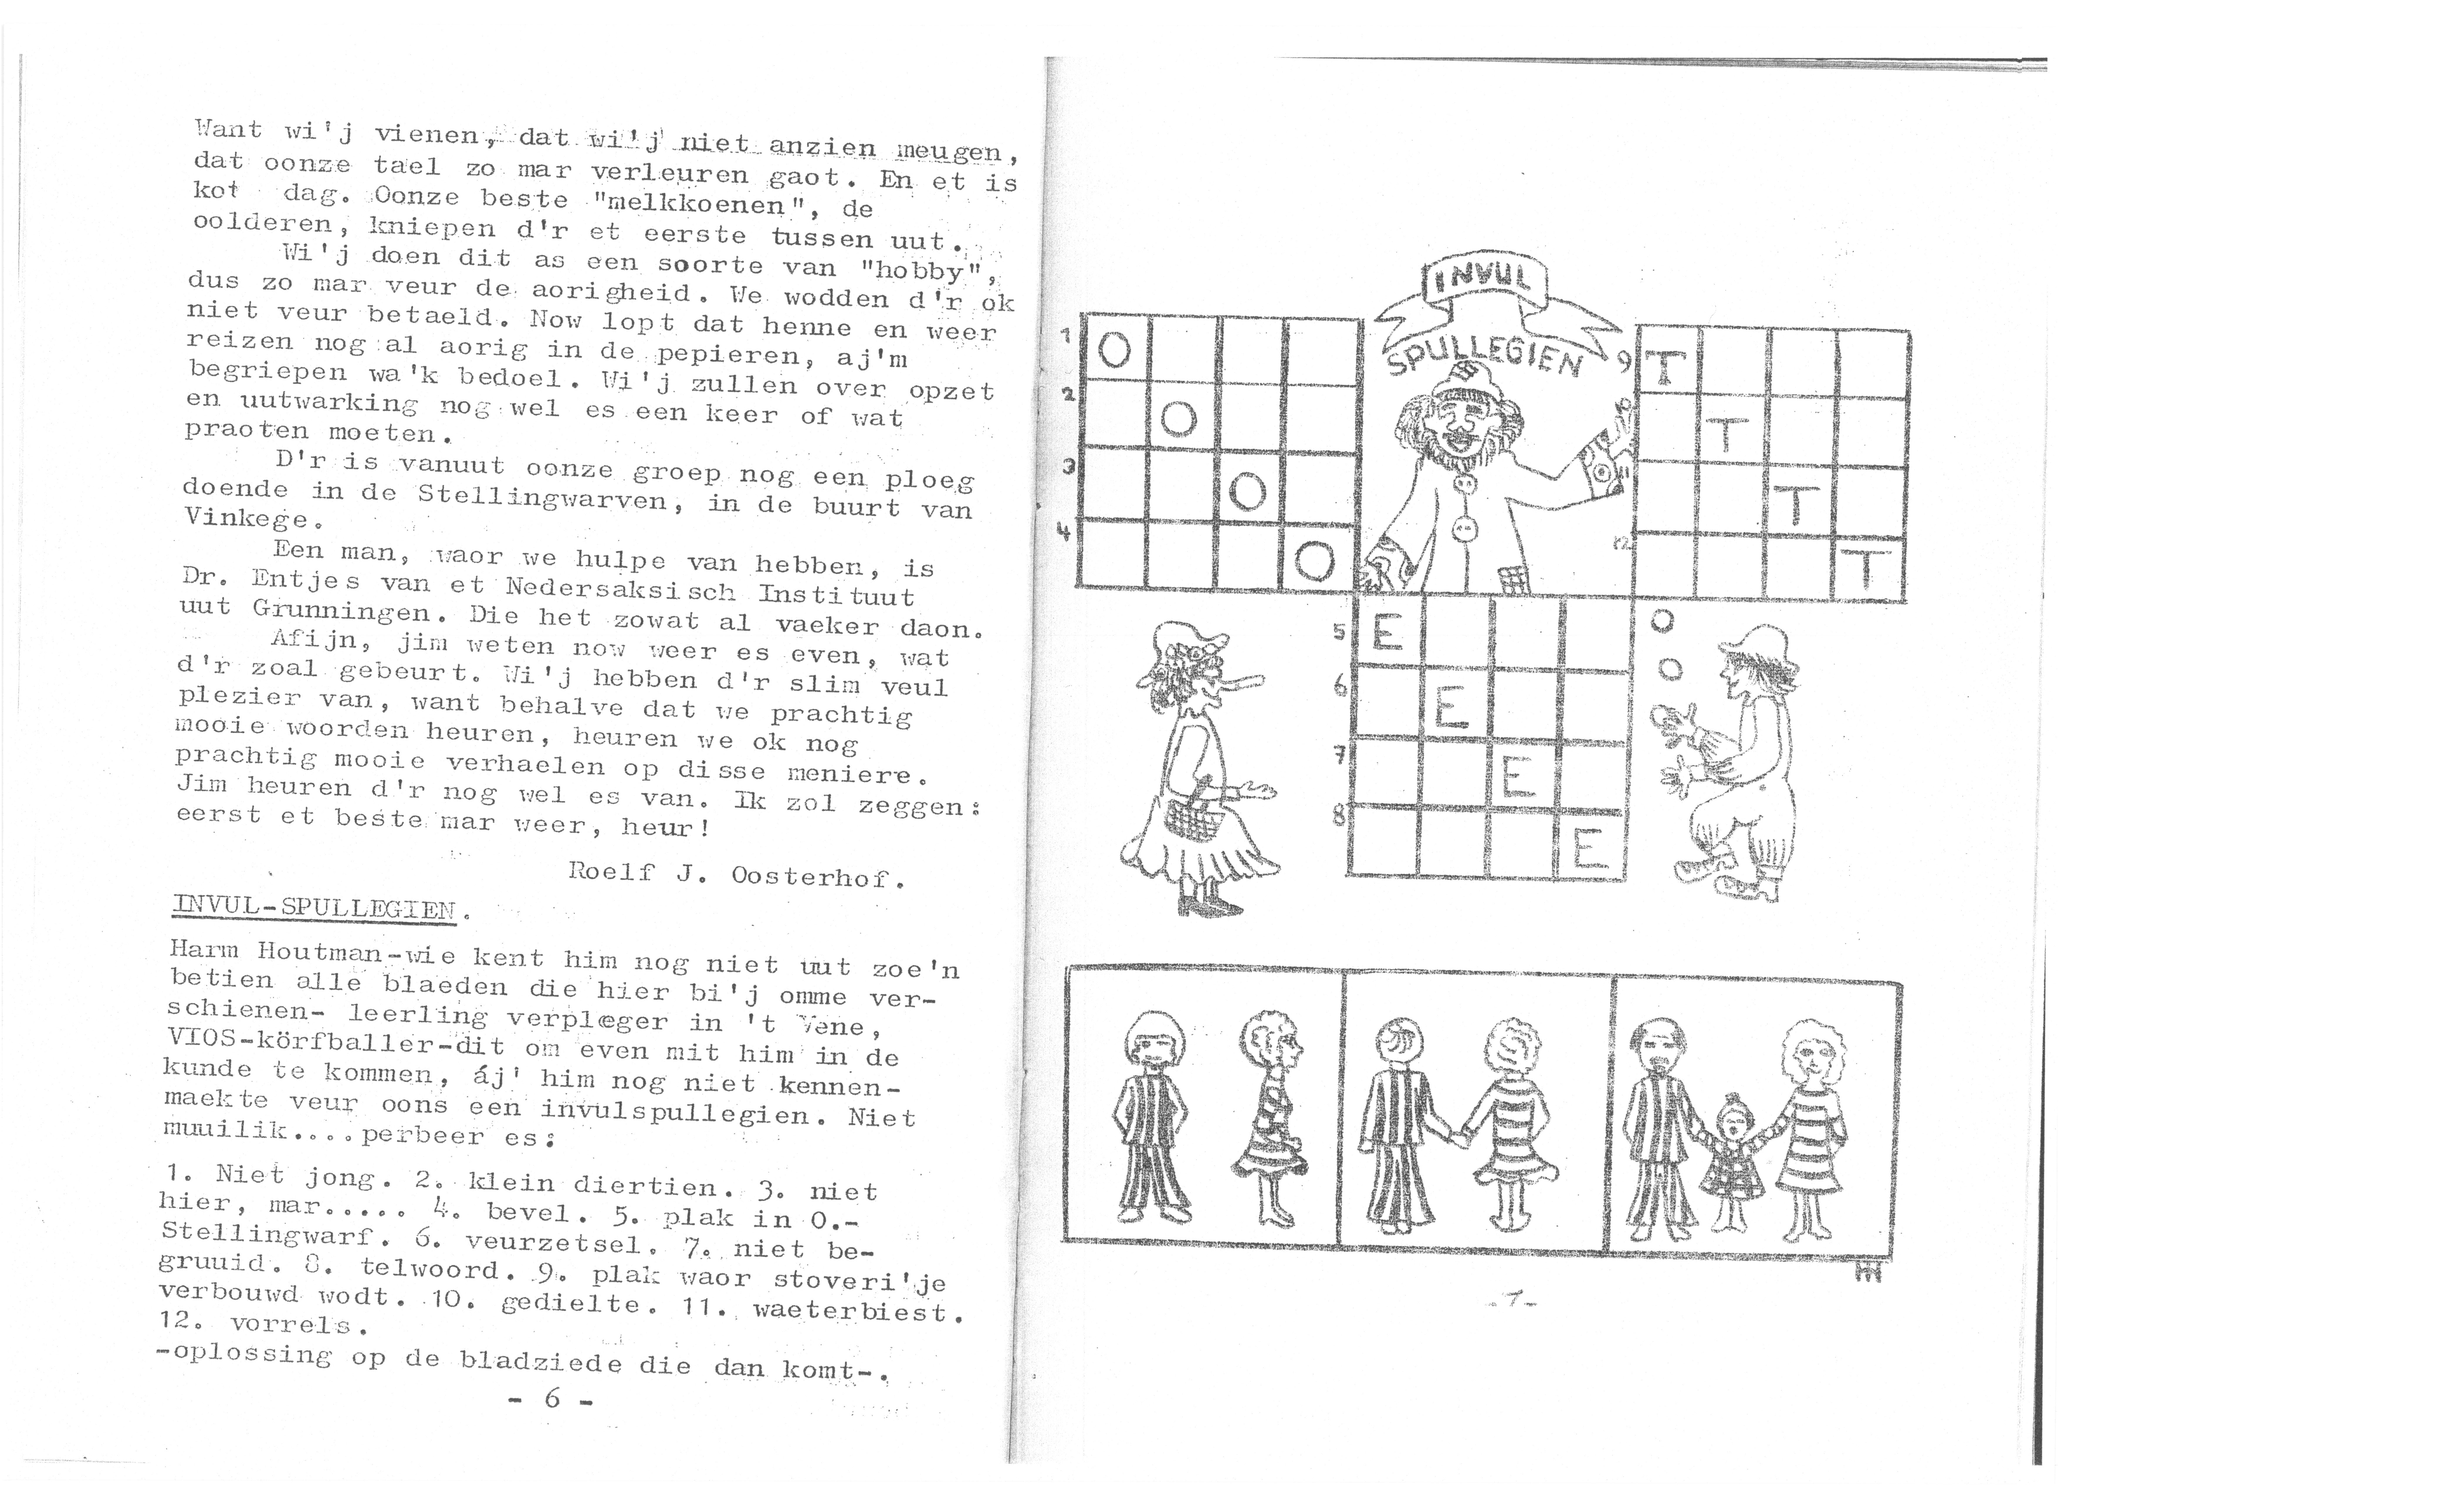 Want wi'j vienen, dat wi'j niet anzien meugen,
dat oonze tael zo mar verleuren gaot. En et is
kot dag. Oonze beste "melkkoenen", de
oolderen, kniepen d'r et eerste tussen uut.
Wi'j doen dit as een soorte van "hobby",
dus zo mar veur de aorigheid. We wodden d'r ok
niet veur betaeld. Now lopt dat henne en weer
reizen nog al aorig in de pepieren, aj'm
begriepen wa'k bedoel. Wi'j zullen over opzet
en uutwarking nog wel es een keer of wat
praoten moeten.
D'r is vanuut oonze groep nog een ploeg
doende in de Stellingwarven, in de buurt van
Vinkege.
Een man, waor we hulpe van hebben, is
Dr. Entjes van et Nedersaksisch Instituut
uut Grunningen. Die het zowat al vaeker daon.
Afijn, jim weten now weer es even, wat
d'r zoal gebeurt. Wi'j hebben d'r slim veul
plezier van, want behalve dat we prachtig
mooie woorden heuren, heuren we ok nog
prachtig mooie verhaelen op disse meniere.
Jim heuren d'r nog wel es van. Ik zol zeggen:
eerst et beste mar weer, heur!
Roelf J. Oosterhof.
INVUL-SPULLEGIEN.
Harm Houtman-wie kent him nog niet uut zoe'n
betien alle blaeden die hier bi'j omme ver-
schienen- leerling verpleger in 't Vene,
VIOS-körfballer-dit om even mit him in de
kunde te kommen, áj' him nog niet kennen-
maekte veur oons een invulspullegien. Niet
muuilik....perbeer es:
1. Niet jong. 2. klein diertien. 3. niet
hier, mar..... 4. bevel. 5. plak in O.-
Stellingwarf. 6. veurzetsel. 7. niet be-
gruuid. 8. telwoord. 9. plak waor stoveri'je
verbouwd wodt. 10. gedielte. 11. waeterbiest.
12. vorrels.
-oplossing op de bladziede die dan komt-.
- 6 -
INVUL
SPULLEGIEN
1 O
2 O
3 O
4 O
9 T
10 T
11 T
12 T
5 E
6 E
7 E
8 E
HH
-7-